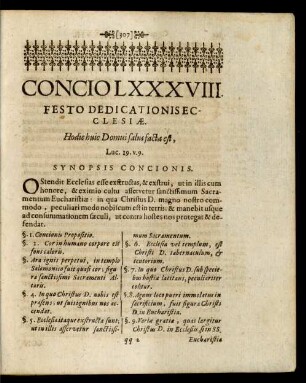 [307]
CONCIO LXXXVIII.
FESTO DEDICATIONIS EC-
CLESIÆ.
Hodie huic Domui salus facta est,
Luc. 29. v. 9.
SYNOPSIS CONCIONIS.
OStendit Ecclesias esse exstructas, & exstrui, ut in illis cum
honore, & eximio cultu asservetur sanctissimum Sacra-
mentum Eucharistiæ: in qua Christus D. magno nostro com-
modo, peculiari modo nobiscum est in terris: & manebit usque
ad consummationem sæculi, ut contra hostes nos protegat & de-
fendat.
§. 1. Concionis Propositio.
§. 2. Cor in humano corpore est
fons caloris.
§. Ara ignis perpetui, in templo
Salomonis fuit quasi cor; figu-
ra sanctissimi Sacramenti Al-
taris.
§. 4. In quo Christus D. nobis est
præsens: ut suis ignibus nos in-
cendat.
§. 5. Ecclesiæ itaque exstructæ sunt;
ut in illis asservetur sanctissi-
mum Sacramentum.
§. 6. Ecclesia vel templum, est
Christi D. tabernaculum, &
tentorium.
§. 7. In quo Christus D. sub specie-
bus hostiæ latitans, peculariter
colitur.
§. 8. Agnus loco pueri immolatus in
sacrificium, fuit figura Christi
D. in Eucharistia.
§. 9. Variæ gratiæ, quas largitur
Christus D. in Ecclesiis, ſ in SS.
qq 2
Eucharistia